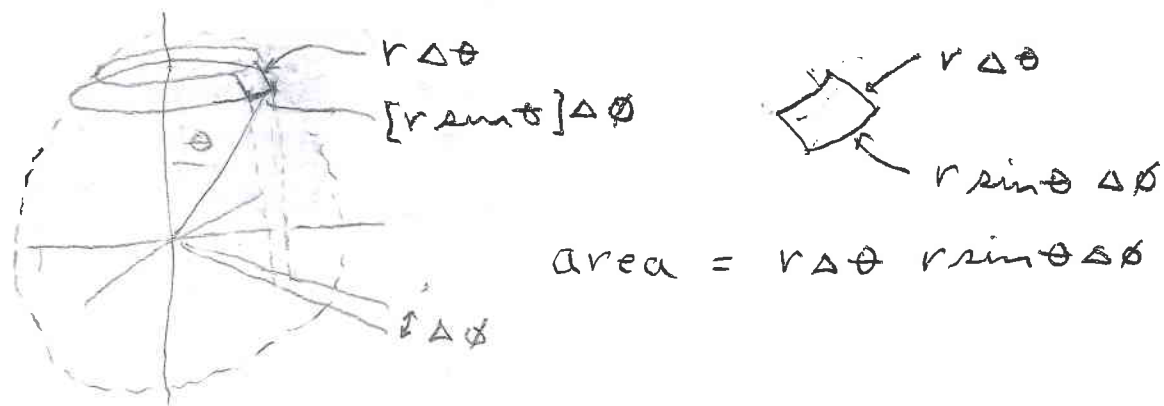 r Δθ
[r sin θ] Δø
θ
Δø
r Δθ
r sin θ Δø
area = r Δθ r sin θ Δø